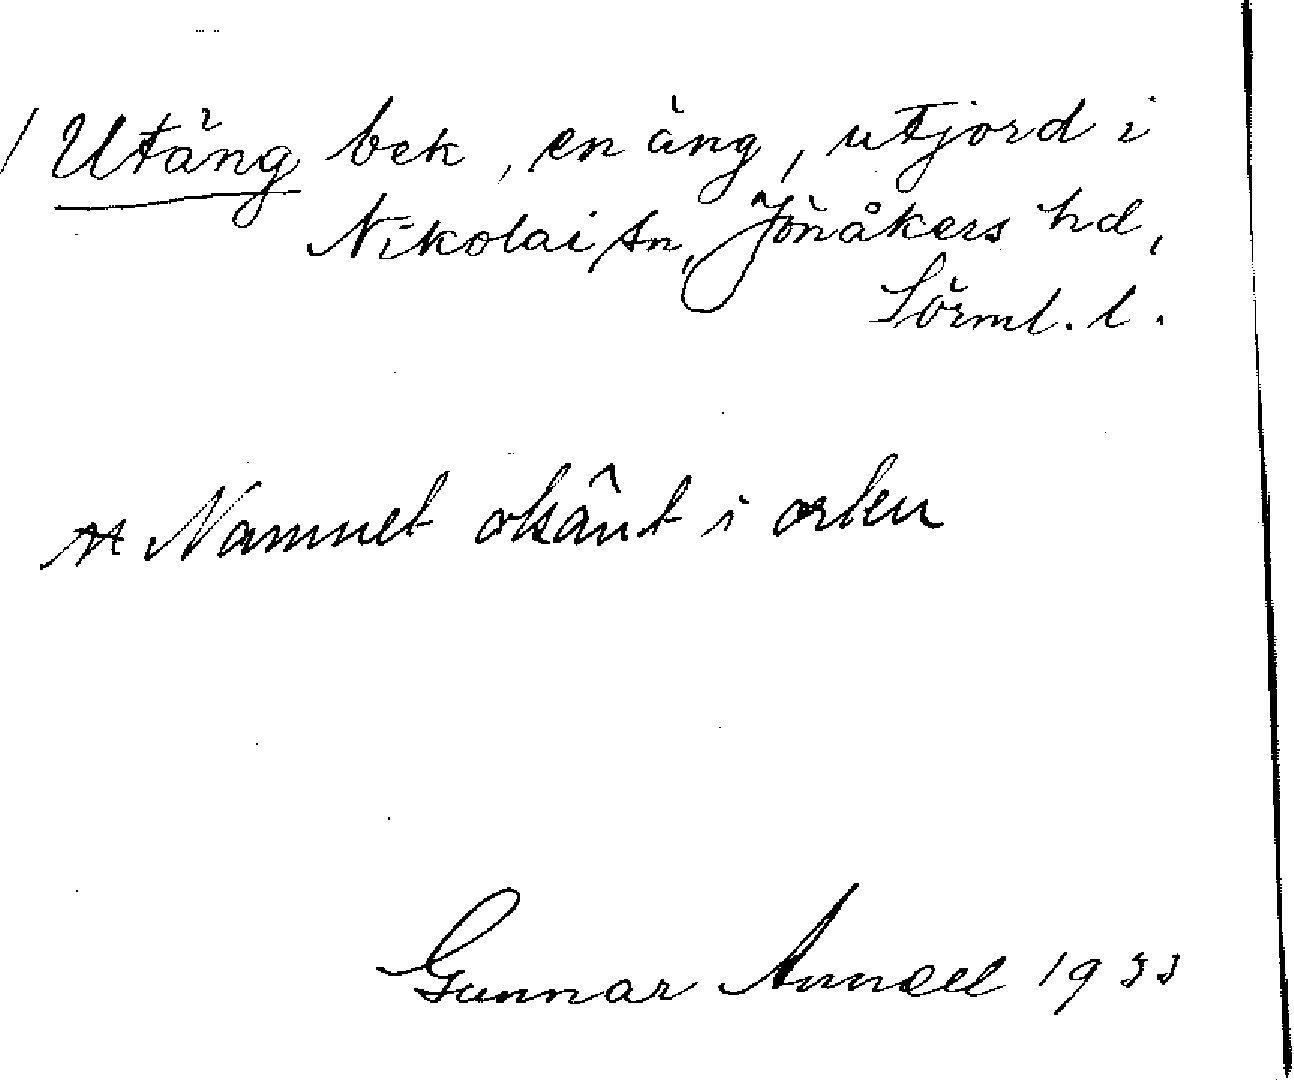 / Utäng bek, en äng, utjord i
Nikolai sn, Jönåkers hd,
Sörml. l.
Namnet okänt i orten
Gunnar Annell 1933